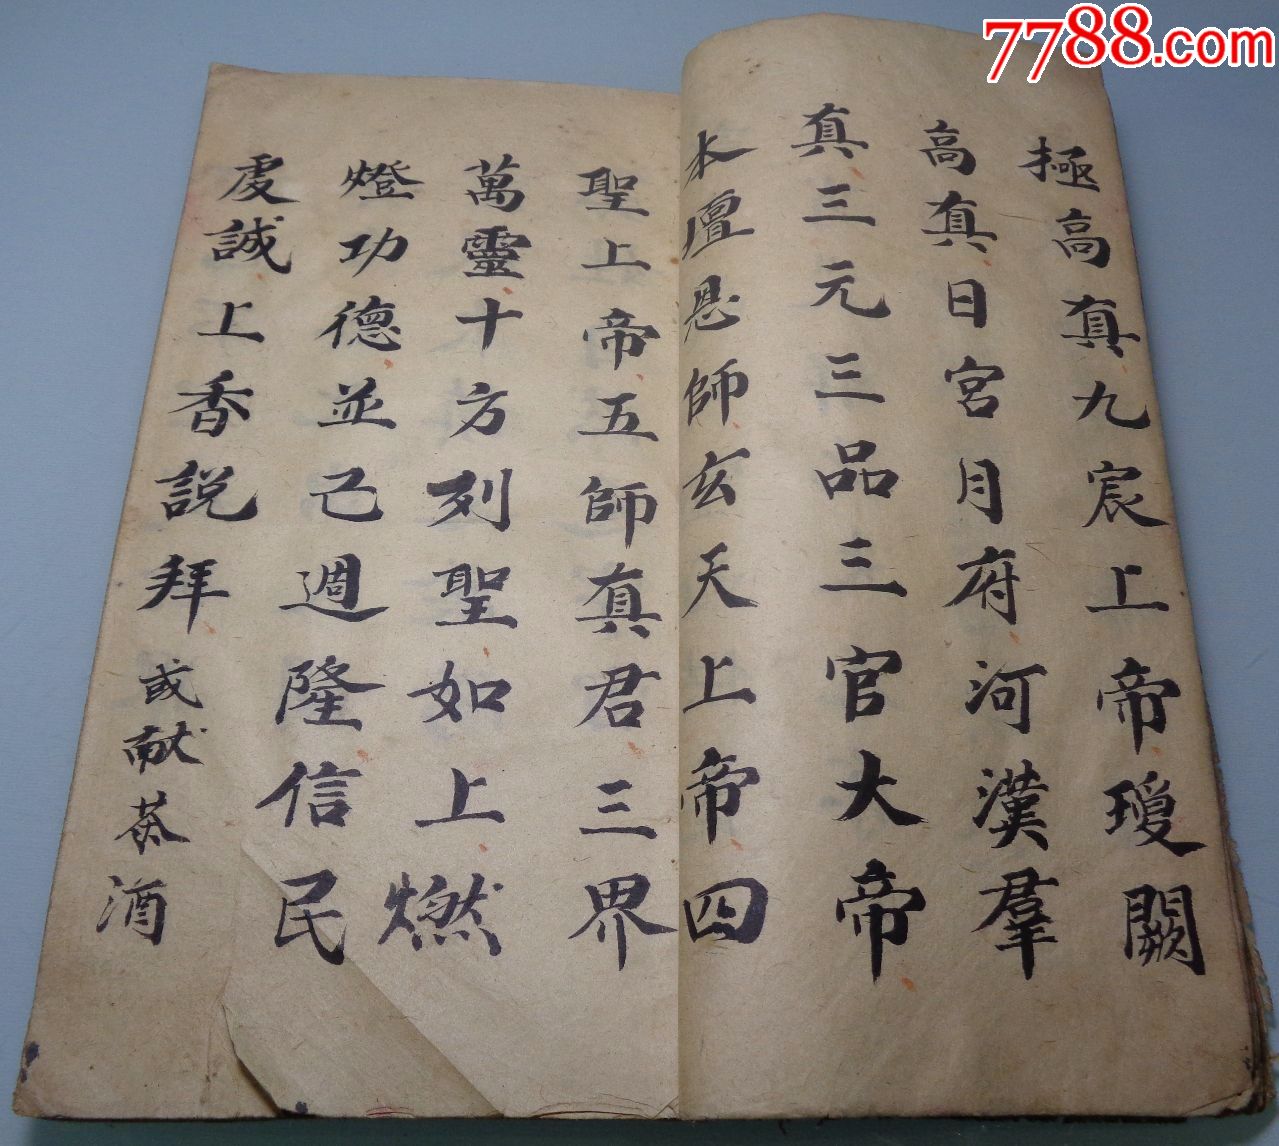 7788.com
極高真九宸上帝瓊闕
高真日宮月府河漢羣
真三元三品三官大帝
本壇恩師玄天上帝四
聖上帝五師真君三界
萬靈十方列聖如上燃
燈功德並己週隆信民
虔誠上香說拜或献茶酒